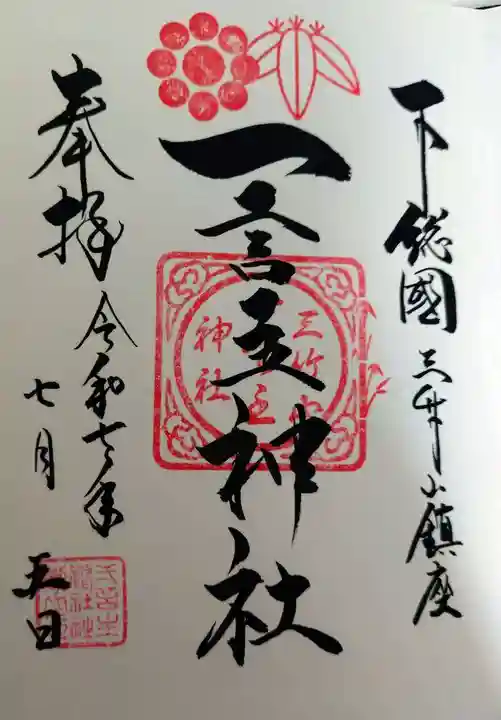 下総國 三竹山鎮座
一言主神社
三竹山
神社
奉拝 令和七年
七月
五日